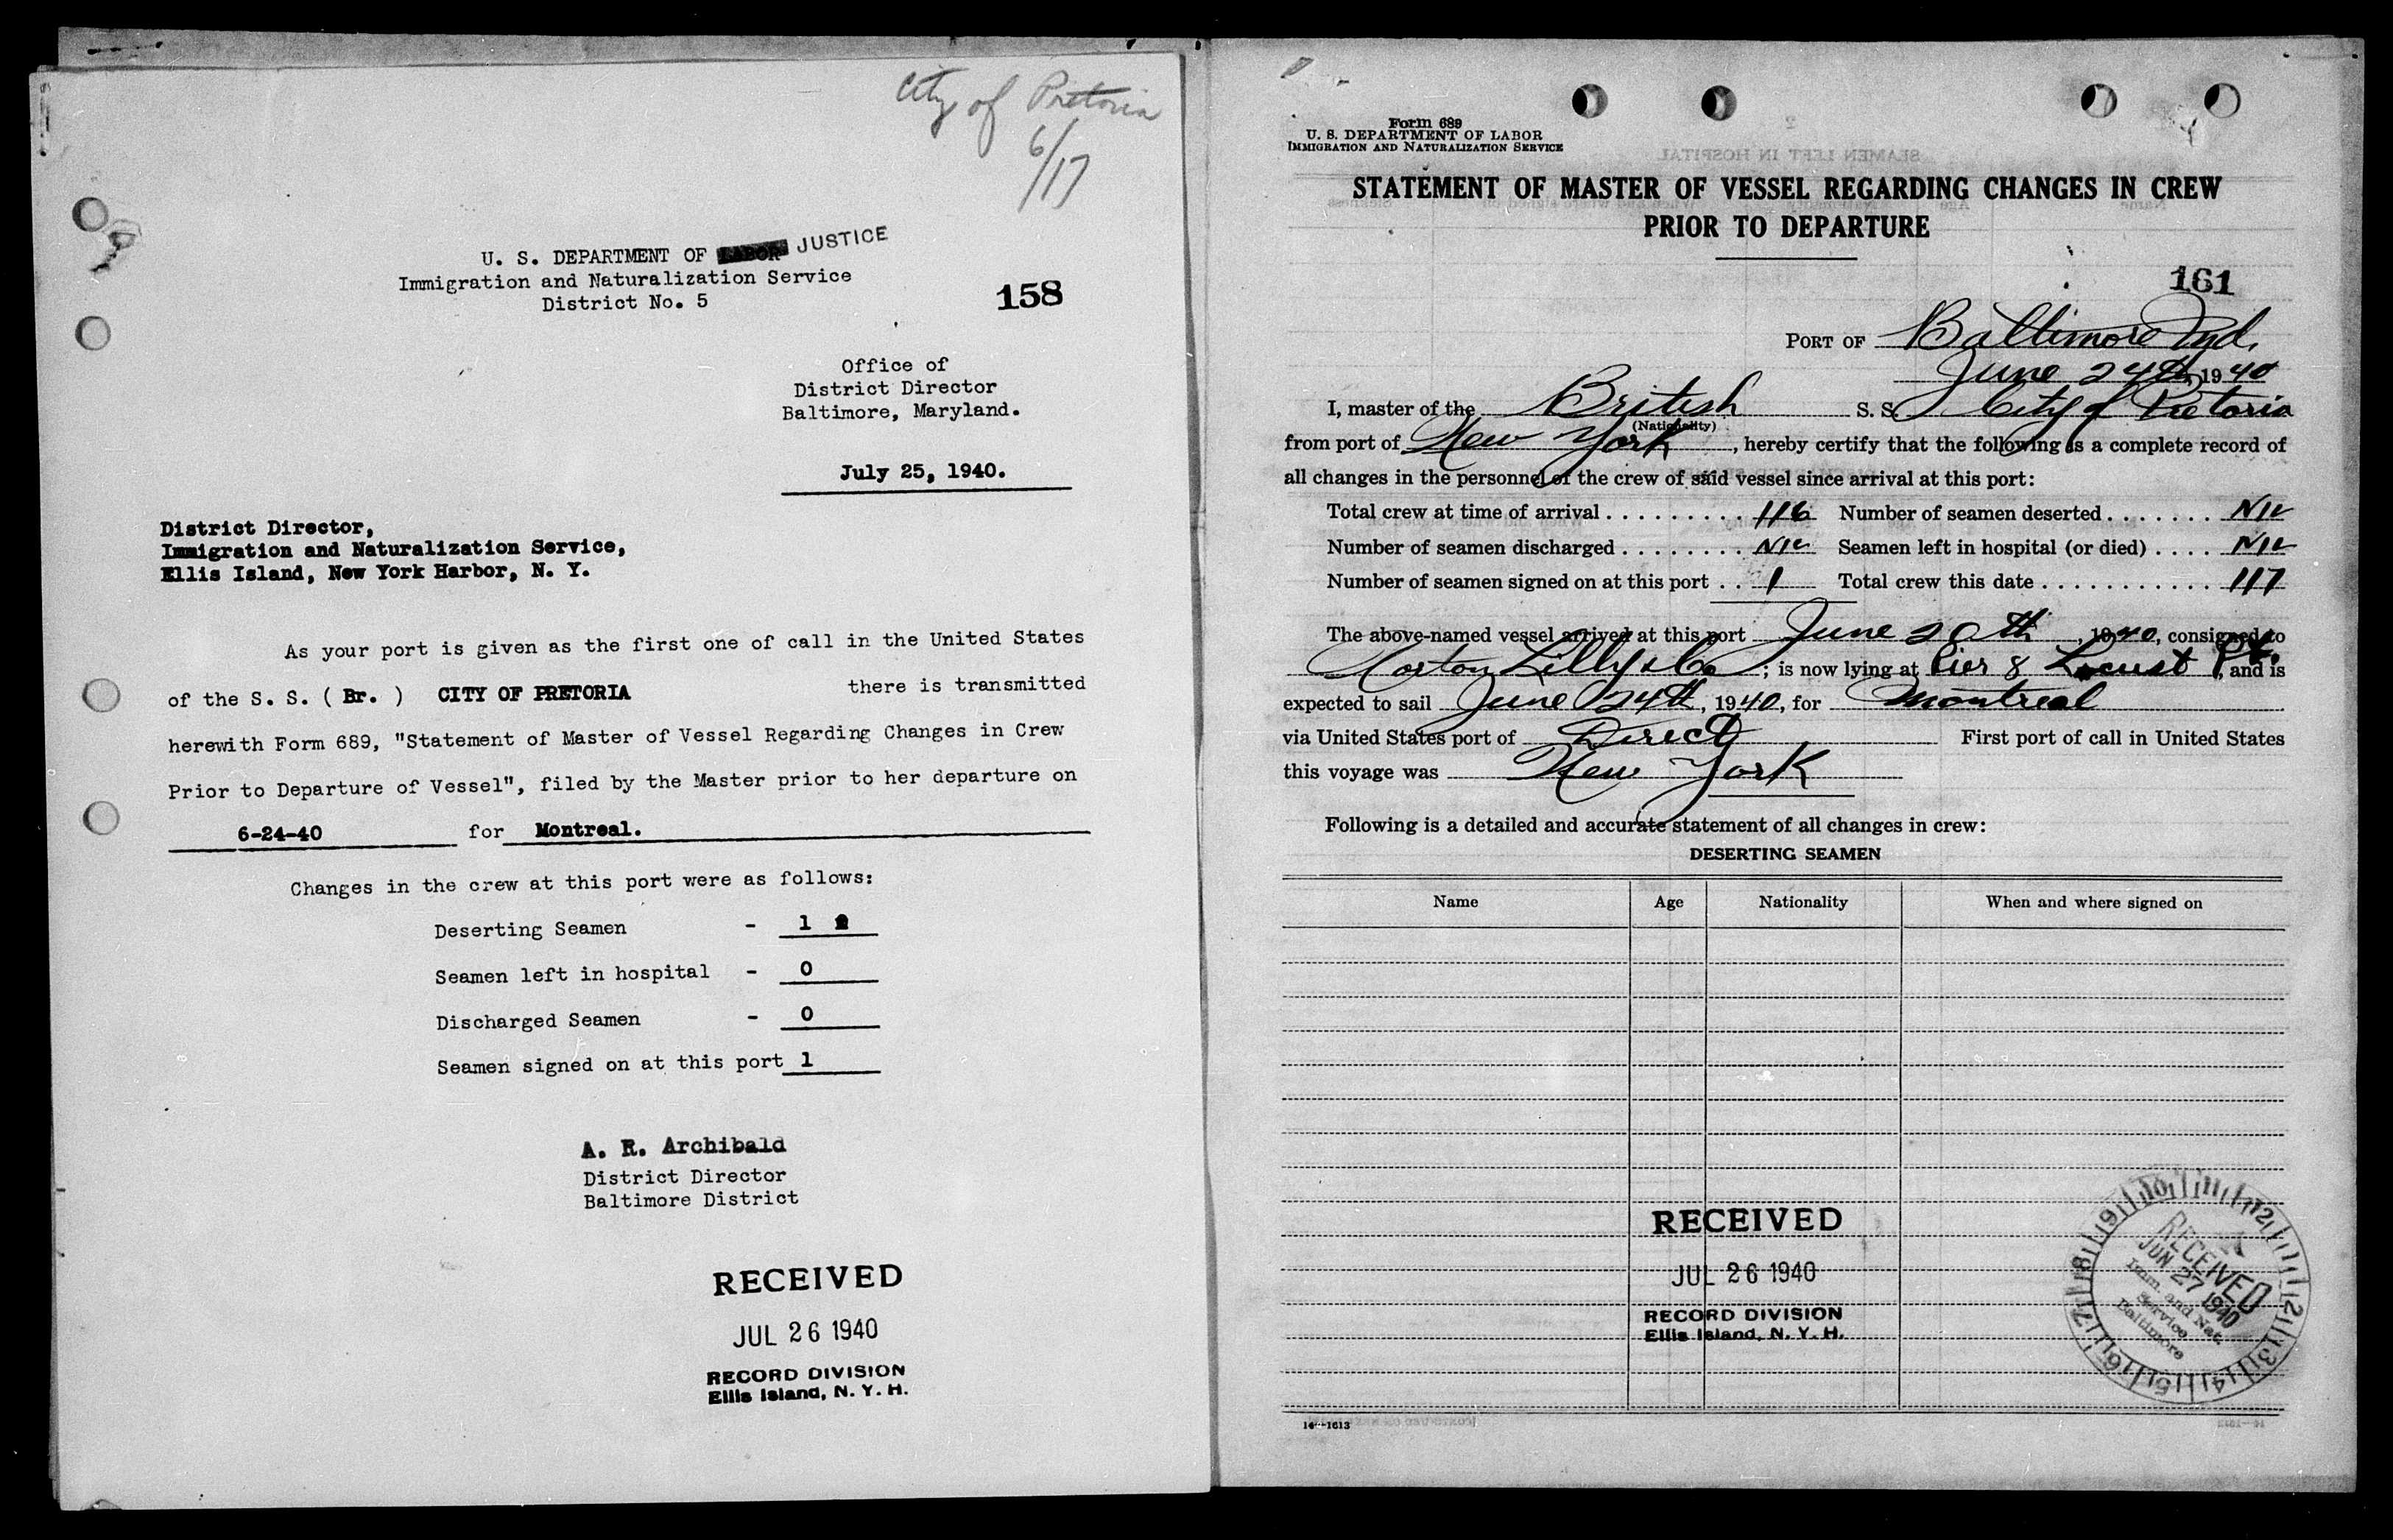 City of Pretoria
6/17
U. S. DEPARTMENT OF LABOR JUSTICE
Immigration and Naturalization Service
District No. 5
158
Office of
District Director
Baltimore, Maryland.
July 25, 1940.
District Director,
Immigration and Naturalization Service,
Ellis Island, New York Harbor, N. Y.
As your port is given as the first one of call in the United States
of the S. S. ( Br. ) CITY OF PRETORIA there is transmitted
herewith Form 689, "Statement of Master of Vessel Regarding Changes in Crew
Prior to Departure of Vessel", filed by the Master prior to her departure on
6-24-40 for Montreal.
Changes in the crew at this port were as follows:
Deserting Seamen - 1
Seamen left in hospital - 0
Discharged Seamen - 0
Seamen signed on at this port 1
A. R. Archibald
District Director
Baltimore District
RECEIVED
JUL 26 1940
RECORD DIVISION
Ellis Island, N. Y. H.
Form 689
U. S. DEPARTMENT OF LABOR
IMMIGRATION AND NATURALIZATION SERVICE
STATEMENT OF MASTER OF VESSEL REGARDING CHANGES IN CREW
PRIOR TO DEPARTURE
161
PORT OF Baltimore Md.
June 24th, 1940
I, master of the British S. S. City of Pretoria
(Nationality)
from port of New York, hereby certify that the following is a complete record of
all changes in the personnel of the crew of said vessel since arrival at this port:
Total crew at time of arrival . . . . . . . . . 116 Number of seamen deserted . . . . . . . Nil
Number of seamen discharged . . . . . . . . Nil Seamen left in hospital (or died) . . . . Nil
Number of seamen signed on at this port . . 1 Total crew this date . . . . . . . . . . . . 117
The above-named vessel arrived at this port June 20th, 1940, consigned to
Norton Lilly & Co; is now lying at Pier 8 Locust Pt., and is
expected to sail June 24th, 1940, for Montreal
via United States port of Direct First port of call in United States
this voyage was New York
Following is a detailed and accurate statement of all changes in crew:
DESERTING SEAMEN
Name Age Nationality When and where signed on
RECEIVED
JUL 26 1940
RECORD DIVISION
Ellis Island, N. Y. H.
RECEIVED
JUN 27 1940
Imm. and Nat.
Service
Baltimore
14—1613